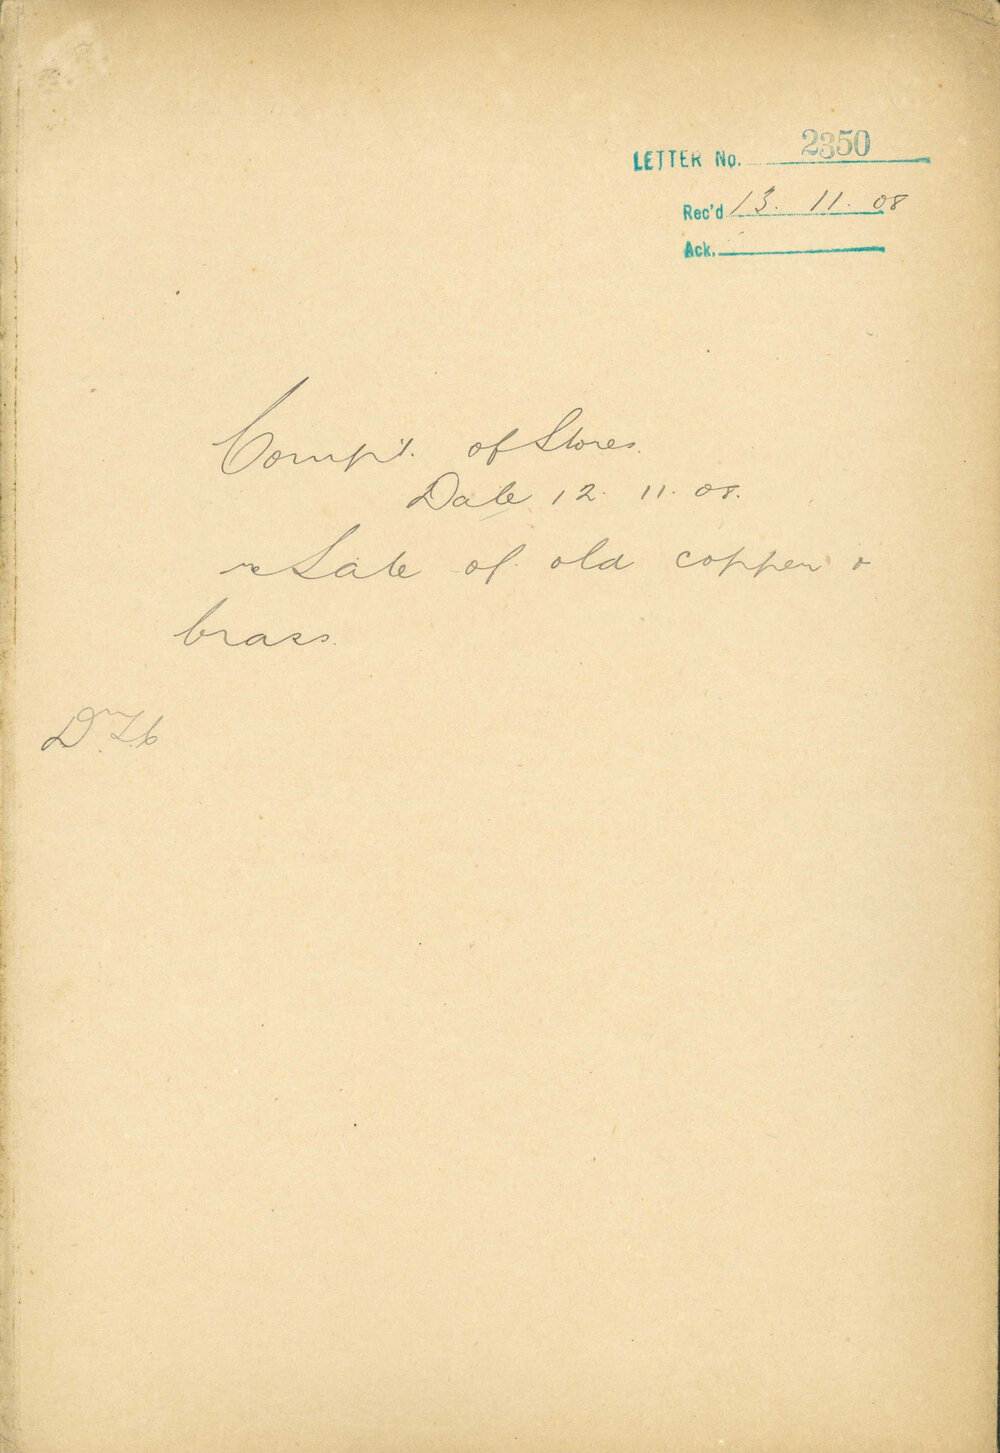 LETTER No. 2350
Rec'd 13. 11. 08
Ack.
Compt. of Stores.
Date 12. 11. 08.
re Sale of old copper &
brass.